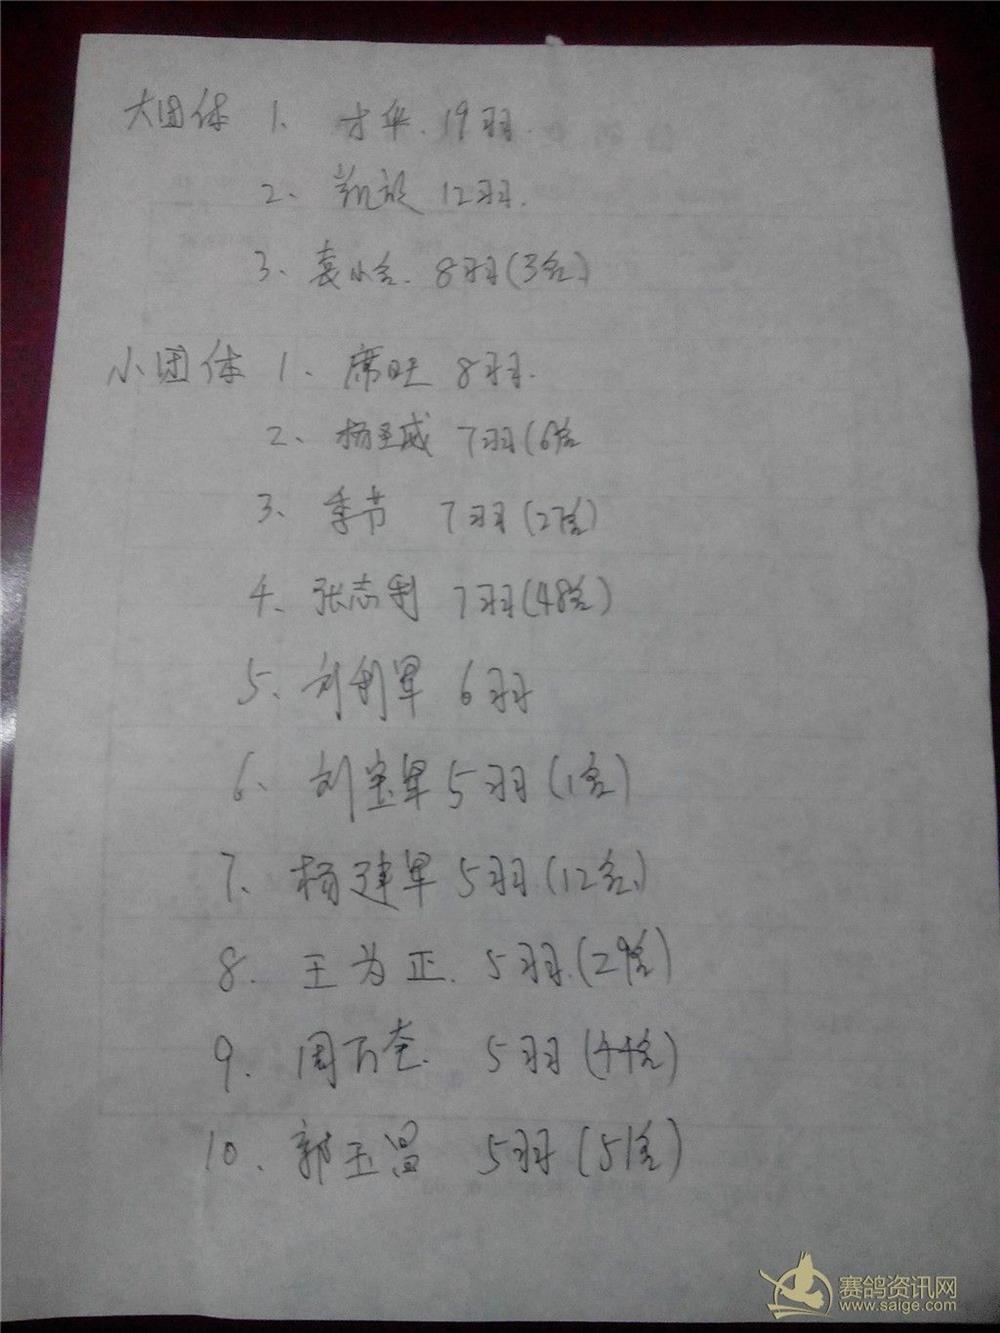 大团体 1、 才华. 19羽.
2、 凯旋 12羽.
3、 袁小舍. 8羽(3名)
小团体 1、 席旺 8羽.
2、 杨玉成 7羽(6名
3、 季节 7羽(27名)
4、 张志利 7羽(48名)
5、 刘利军 6羽
6、 刘宝军 5羽(1名)
7、 杨建军 5羽(12名)
8. 王为正. 5羽.(29名)
9、 周万奎. 5羽(44名)
10、 郭玉昌 5羽(51名)
赛鸽资讯网
www.saige.com